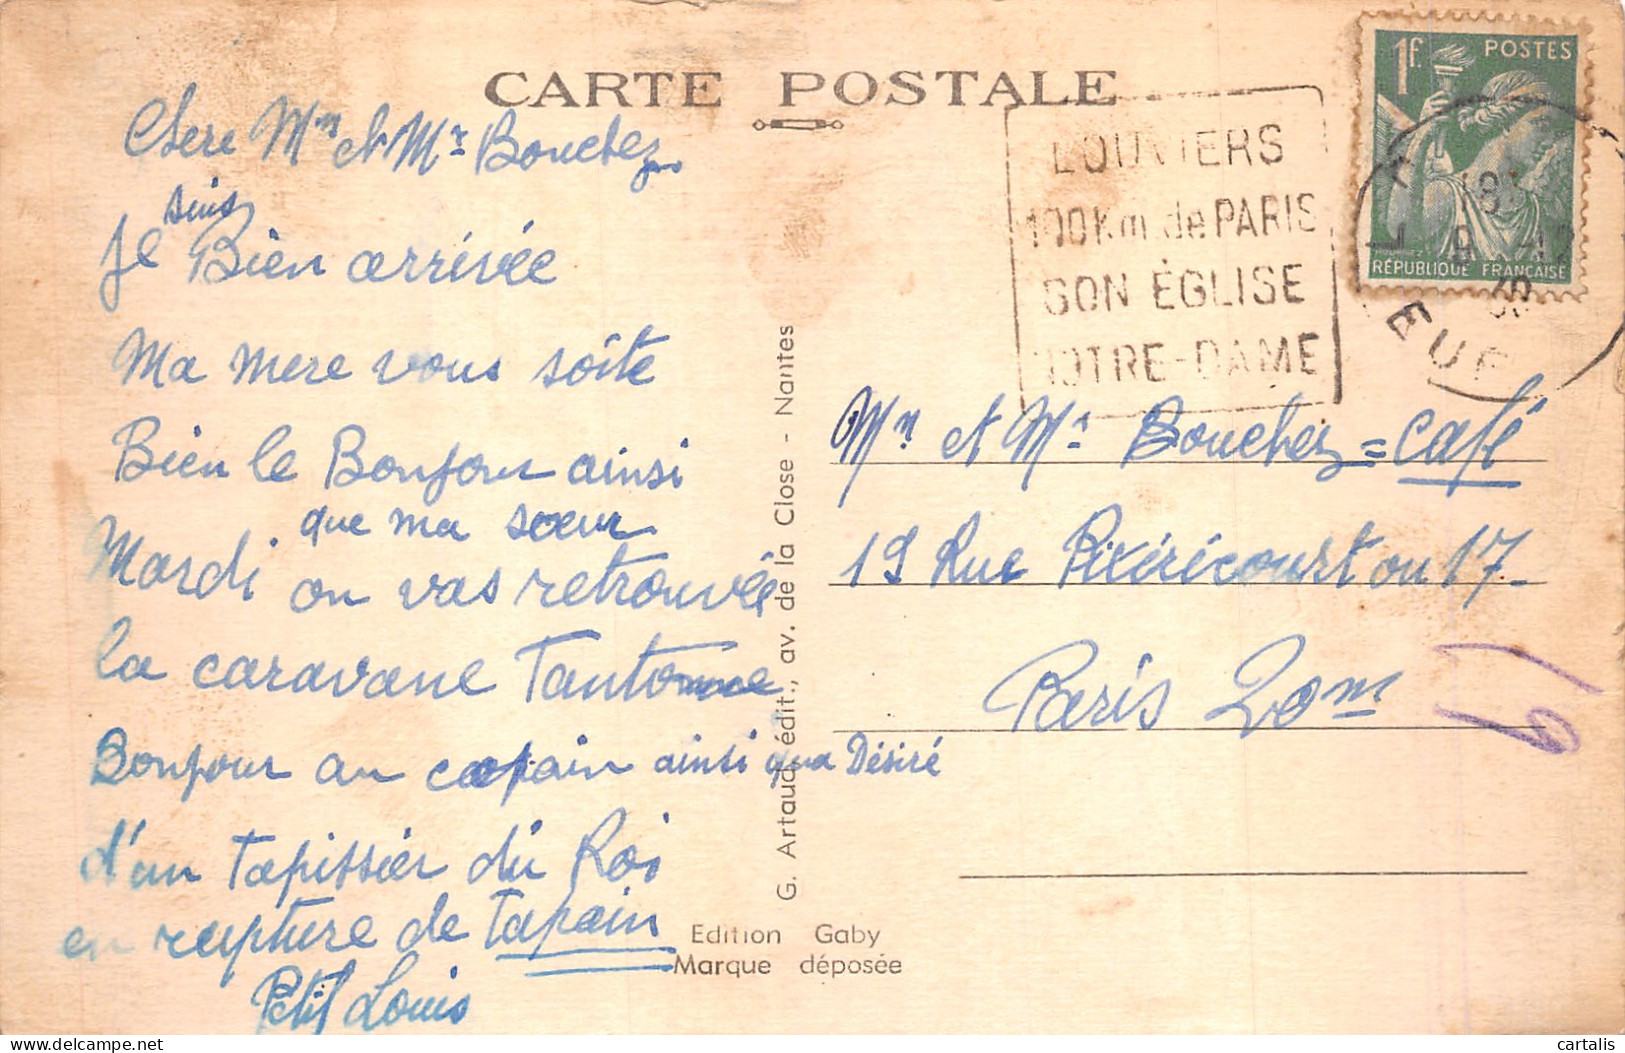 CARTE POSTALE
Chere Mm et Mr Bouchez
Je suis Bien arrivée
Ma mere vous soite
Bien le Bonjour ainsi
que ma sœur
Mardi on vas retrouvée
la caravane Tantonne
Bonjour au copain ainsi qua Désiré
d'un Tapissier du Roi
en rupture de Tapain
Petit Louis
G. Artaud, édit., av. de la Close - Nantes
Edition Gaby
Marque déposée
LOUVIERS
100Km de PARIS
SON ÉGLISE
NOTRE-DAME
1f. POSTES
RÉPUBLIQUE FRANÇAISE
EURE
Mm et Mr Bouchez = Café
19 Rue Pixérécourt ou 17
Paris 20m
19
cartalis